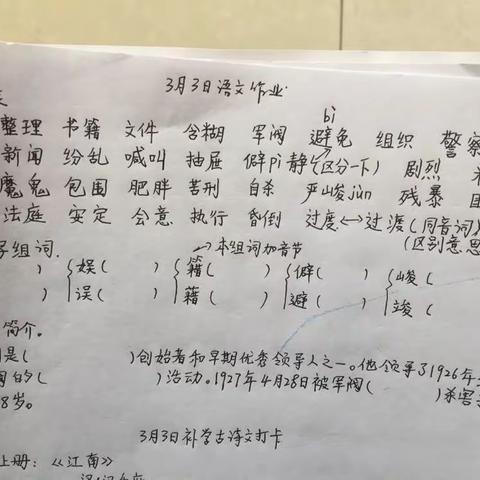 3月3日语文作业
bì
整理 书籍 文件 含糊 军阀 避免 组织 警察
新闻 纷乱 喊叫 抽屉 僻pì静(区分一下) 剧烈
魔鬼 包围 肥胖 苦刑 自杀 严峻jùn 残暴
法庭 安定 会意 执行 昏倒 过度↔过渡(同音词)
(区别意思
组词. 本组词加音节
) {娱( ) {籍( ) {僻( ) {峻(
) 误( ) 藉( ) 避( ) 竣(
简介。
是( )创始者和早期优秀领导人之一。他领导了1926年
的( )活动。1927年4月28日被军阀( )杀害
8岁。
3月3日补学古诗文打卡
上册:《江南》